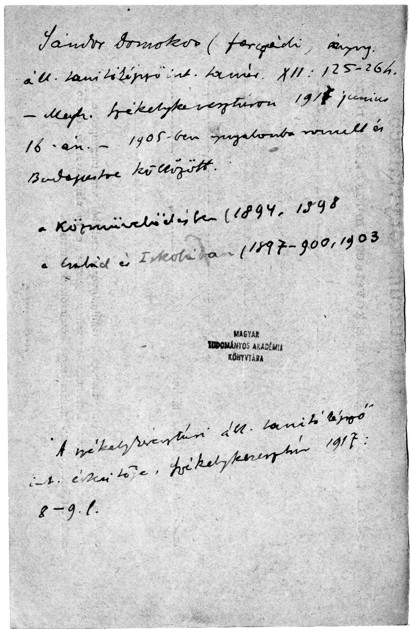 Sándor Domokos (farczádi, nyug.
áll. tanítóképző int. tanár. XII: 125-26 h.
– Megh. Székelykereszturon 1917 junius
16-án. – 1905-ben nyugalomba vonult és
Budapestre költözött.
a Közművelődésben (1894, 1898
a Család és Iskolában (1897–900, 1903
MAGYAR
TUDOMÁNYOS AKADÉMIA
KÖNYVTÁRA
A székelykereszturi áll. tanítóképző
int. értesítője, Székelykeresztúr 1917:
8–9. l.